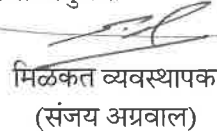 मिळकत व्यवस्थापक
(संजय अग्रवाल)